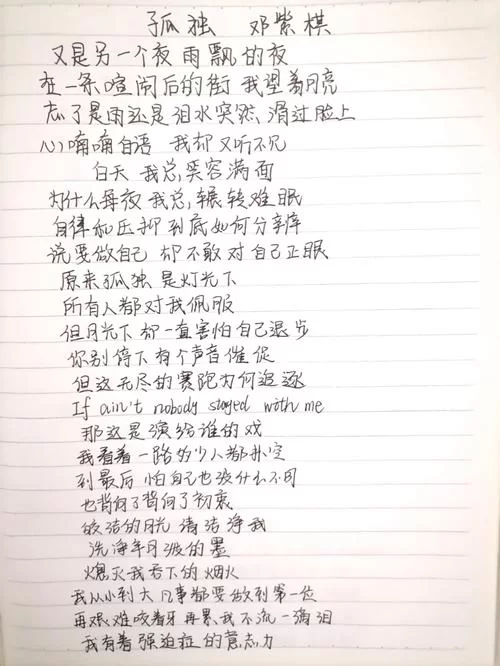 孤独 邓紫棋
又是另一个夜 雨飘的夜
在一条喧闹后的街 我望着月亮
忘了是雨还是泪水突然 滑过脸上
心喃喃自语 我却又听不见
白天 我总笑容满面
为什么每夜 我总辗转难眠
自律和压抑 到底如何分辨
说要做自己 却不敢对自己正眼
原来孤独 是灯光下
所有人都对我佩服
但月光下 却一直害怕自己退步
你别停下 有个声音催促
但这无尽的赛跑为何追逐
If ain't nobody stayed with me
那这是演给谁的戏
我看着 一路多少人都扑空
到最后 怕自己也没什么不同
也背向了背向了初衷
皎洁的月光 请洁净我
洗净年月泼的墨
熄灭我吞下的烟火
我从小到大 凡事都要做到第一位
再艰难咬着牙 再累我不流一滴泪
我有着 强迫症的意志力